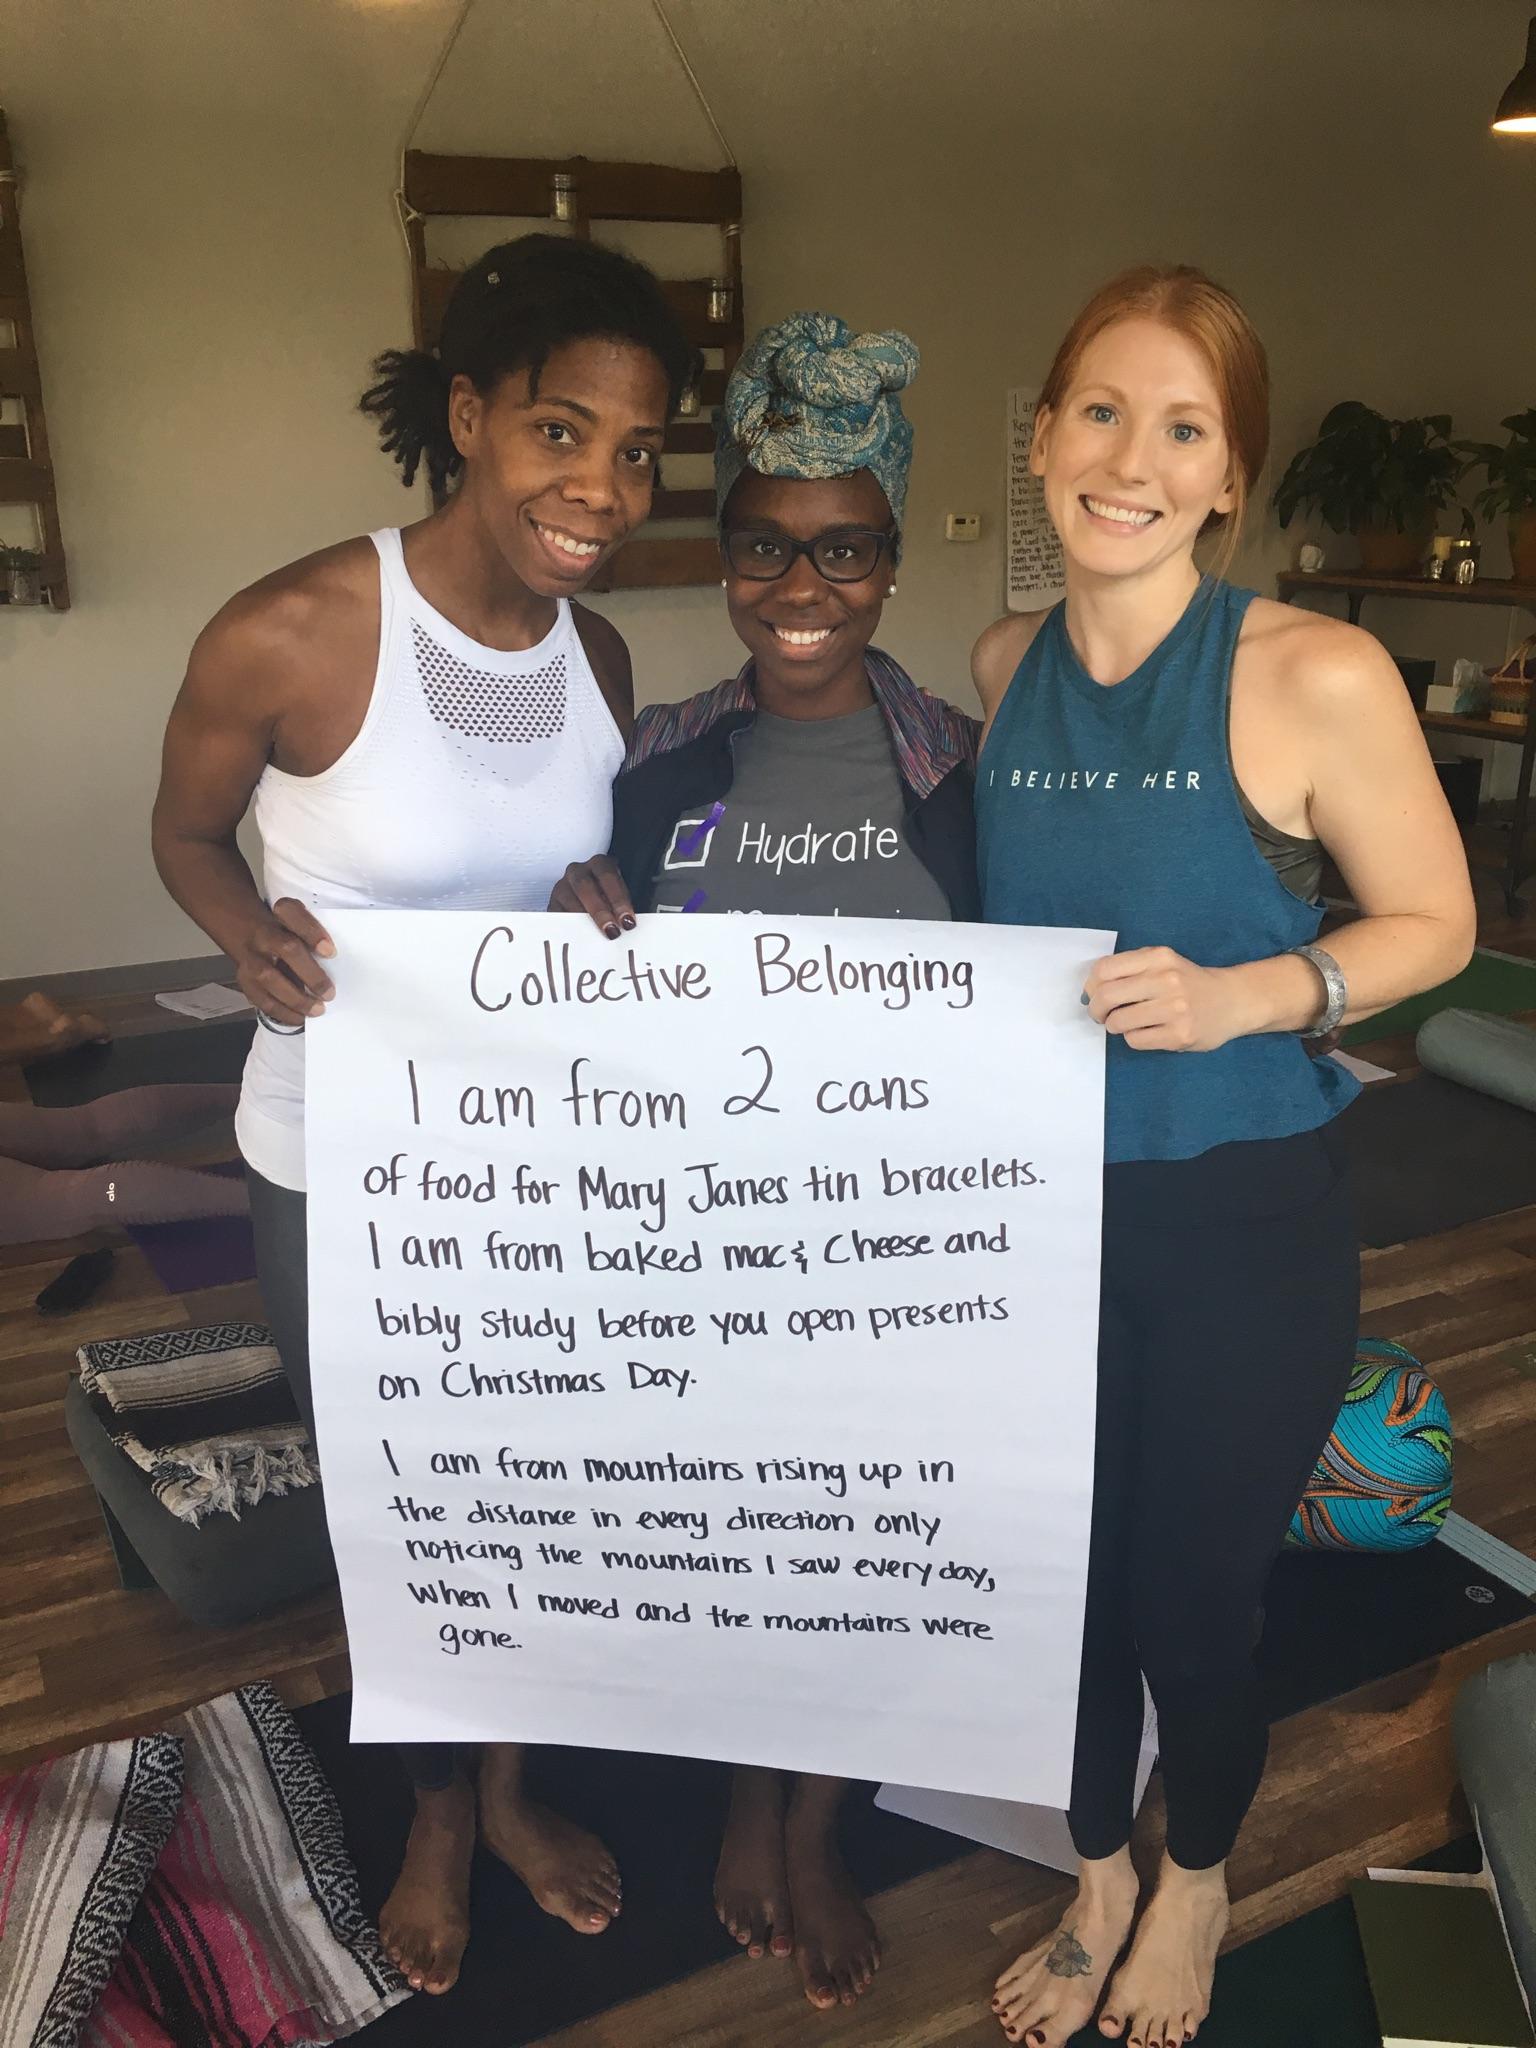 Collective Belonging
I am from 2 cans
of food for Mary Janes tin bracelets.
I am from baked mac & Cheese and
bibly study before you open presents
on Christmas Day.
I am from mountains rising up in
the distance in every direction only
noticing the mountains I saw every day,
when I moved and the mountains were
gone.
Hydrate
I BELIEVE HER
alo